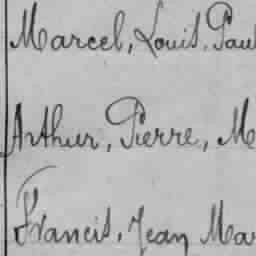 Marcel, Louis, Paul
Arthur, Pierre, M
Francis, Jean Mar